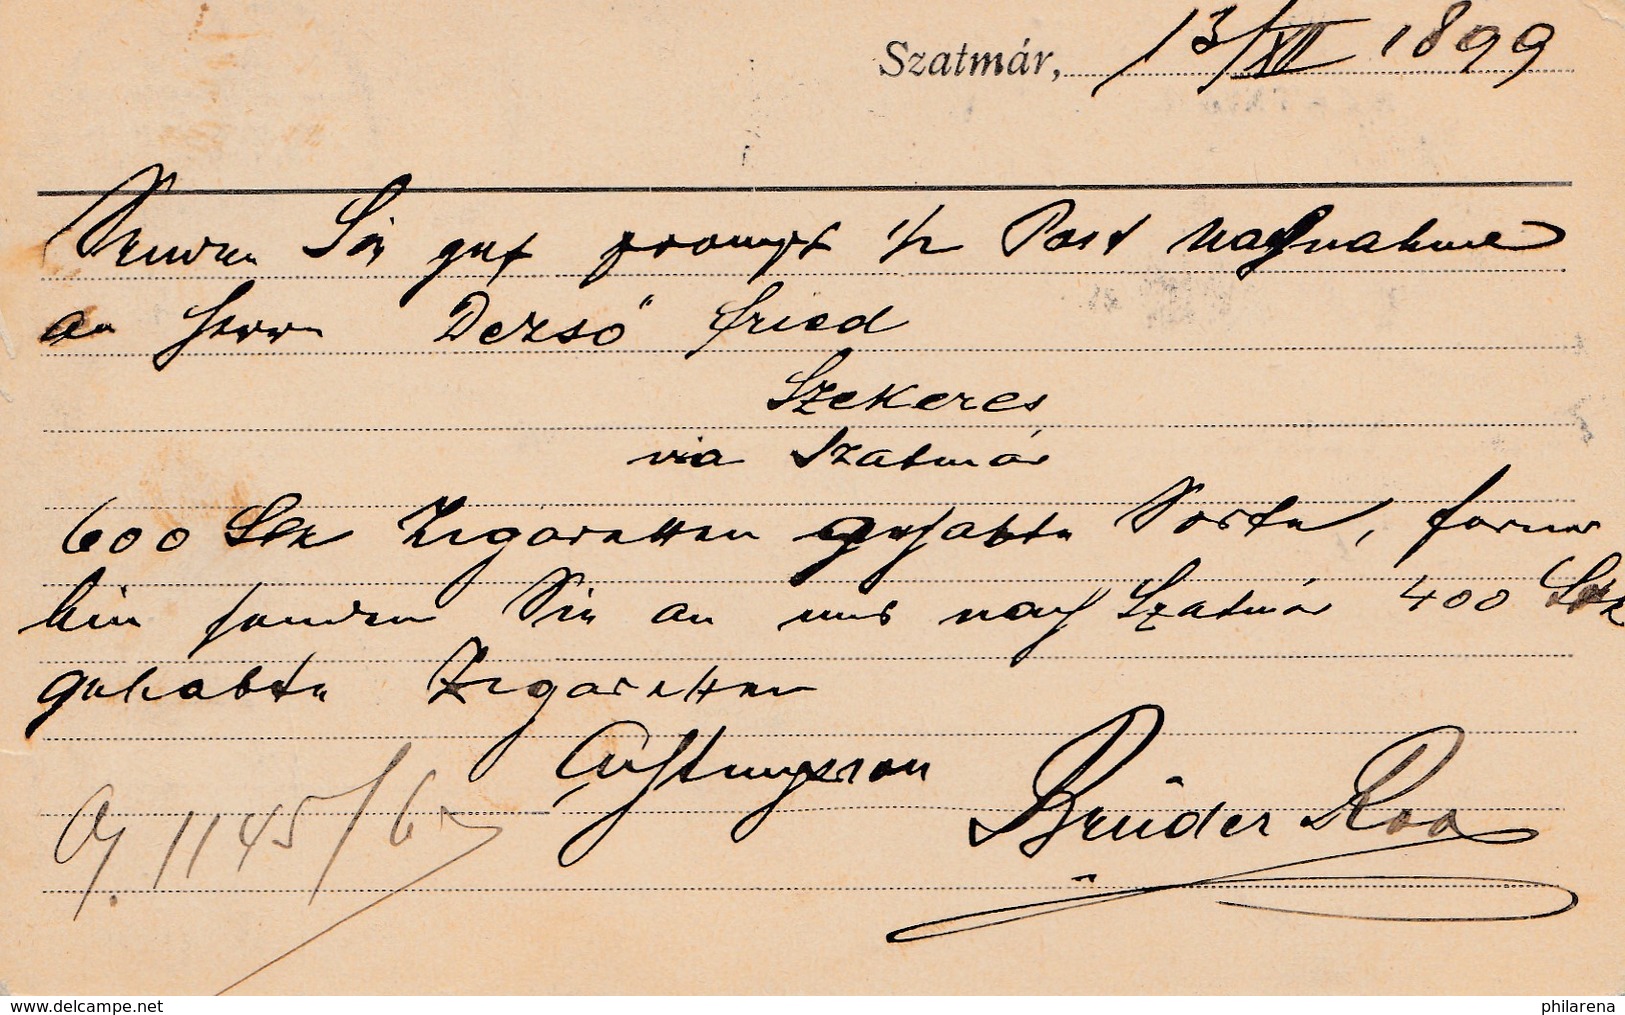 Szatmár, 13/XII 1899
Senden Sie gef prompt p Post Nachnahme
an Herrn Dezső Fried
Szekeres
via Szatmár
600 Stk Zigaretten gehabte Sorte, ferner
hin senden Sie an uns nach Szatmár 400 Stk
gehabte Zigaretten
Achtungsvoll
Brüder Roa
1145/6
www.delcampe.net
philarena